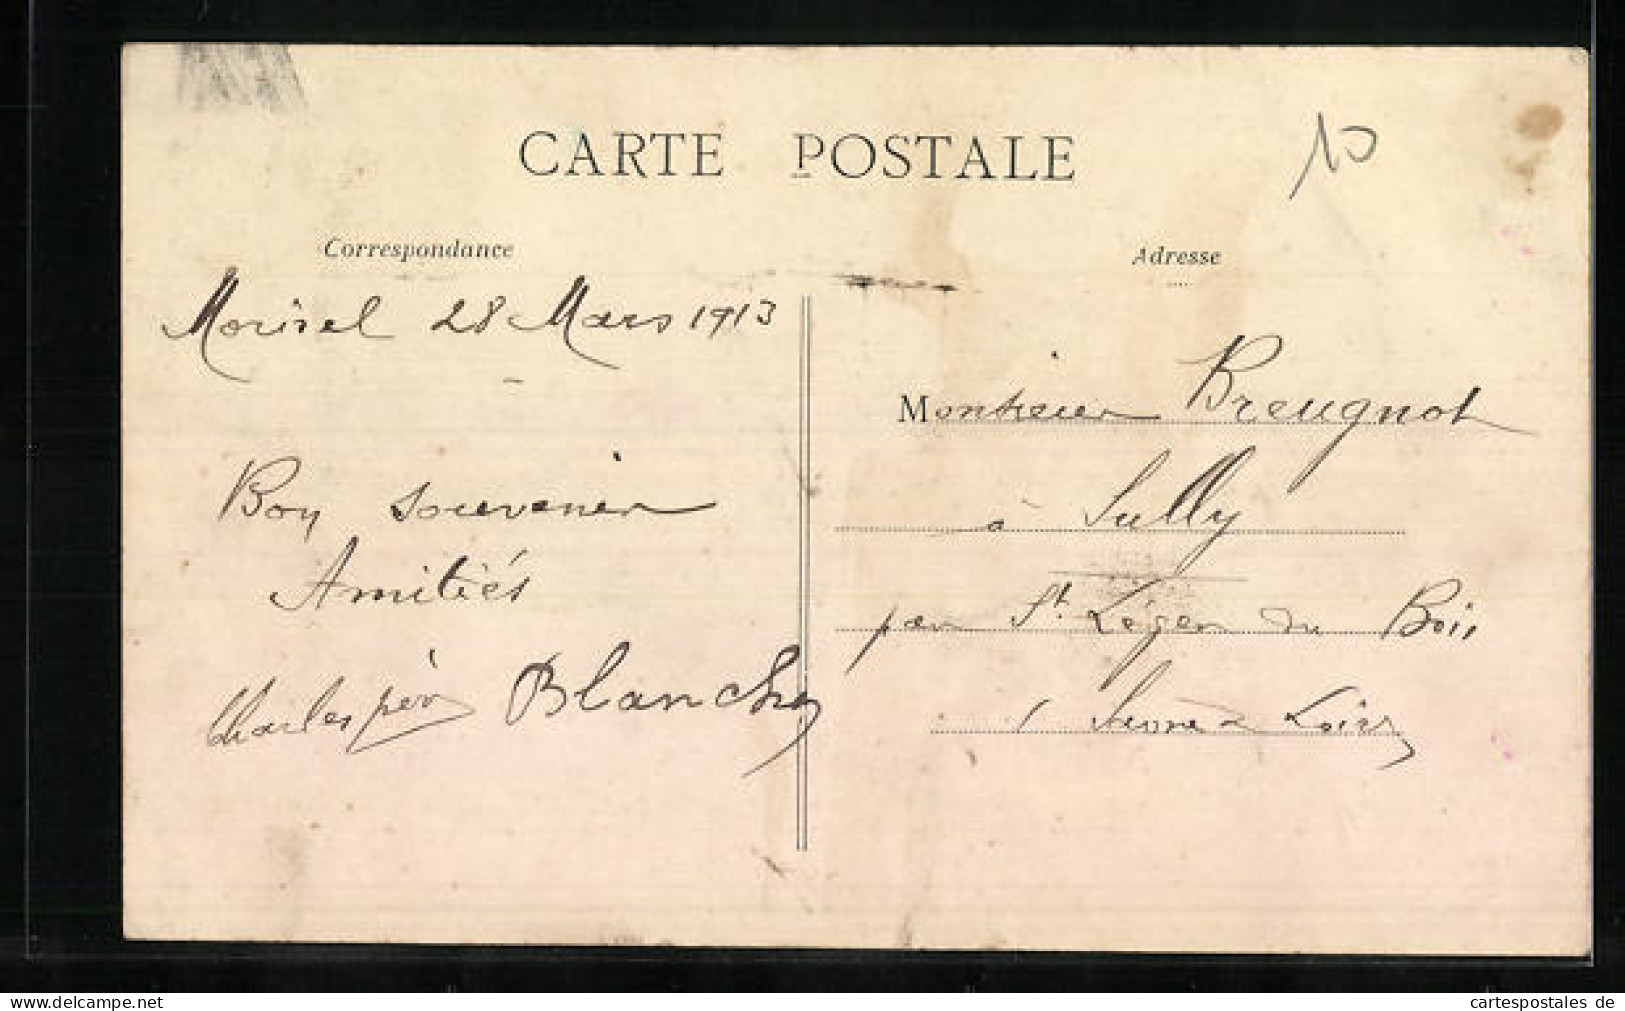 CARTE POSTALE
10
Correspondance
Adresse
Morisel 28 Mars 1913
Bon souvenir
Amitiés
Charles père Blanche
Monsieur Breugnot
à Sully
par St. Léger du Bois
Saône & Loire
cartespostales de